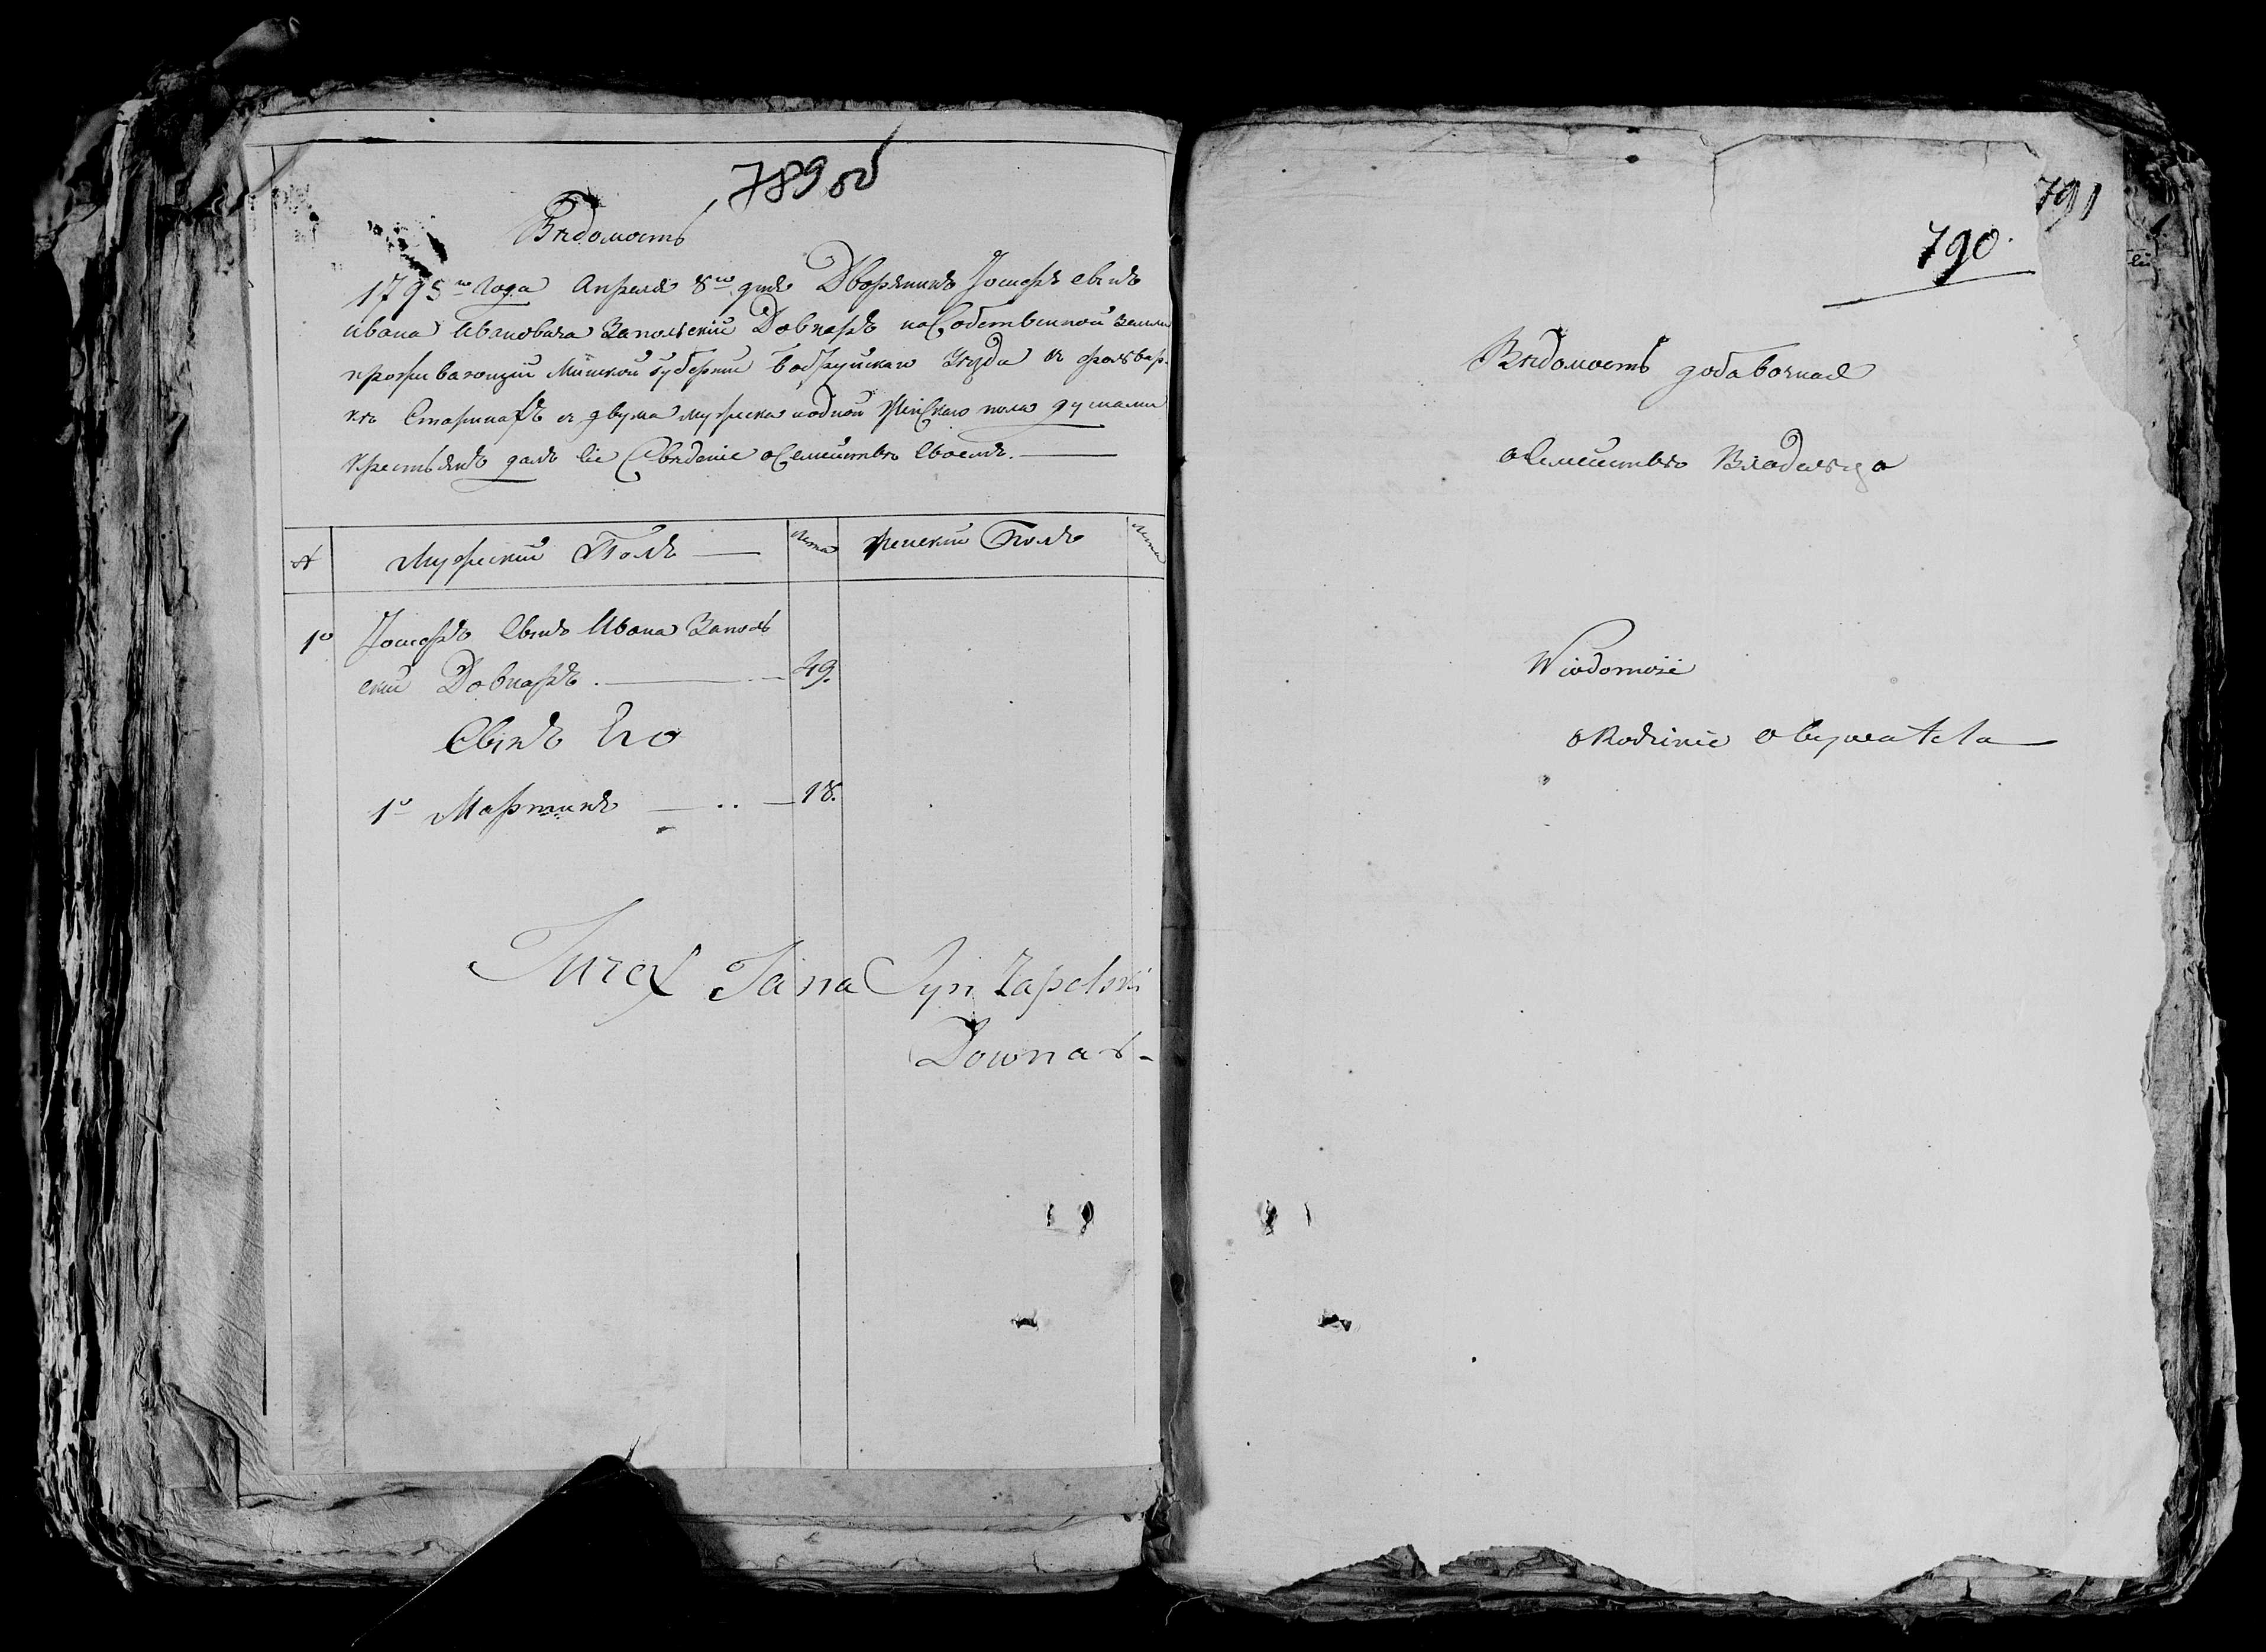 789 об
Вѣдомость
1795го Года Апреля 8го дня Дворянинъ Іосифъ сынъ
Ивана Ивановича Запольскій Довнаръ на Собственной Земли
проживающій Минской Губерніи Бобруйскаго Уѣзда въ фольвар-
кѣ Старинахъ съ двума мужеска и одной Женскаго пола душами
Крестьянъ далъ сіе Сведеніе о Семействѣ Своемъ.
№ Мужескій Полъ Лета Женский Полъ Лета
1о Іосифъ Сынъ Ивана Заполь
скій Довнаръ 49.
Сынъ Его
1о Мартинъ 18.
Juref Jana Syn Zapolski
Downar
791
790.
Вѣдомость добавочная
о Семействѣ Владельца
Wiadomość
o Rodzinie obywatela